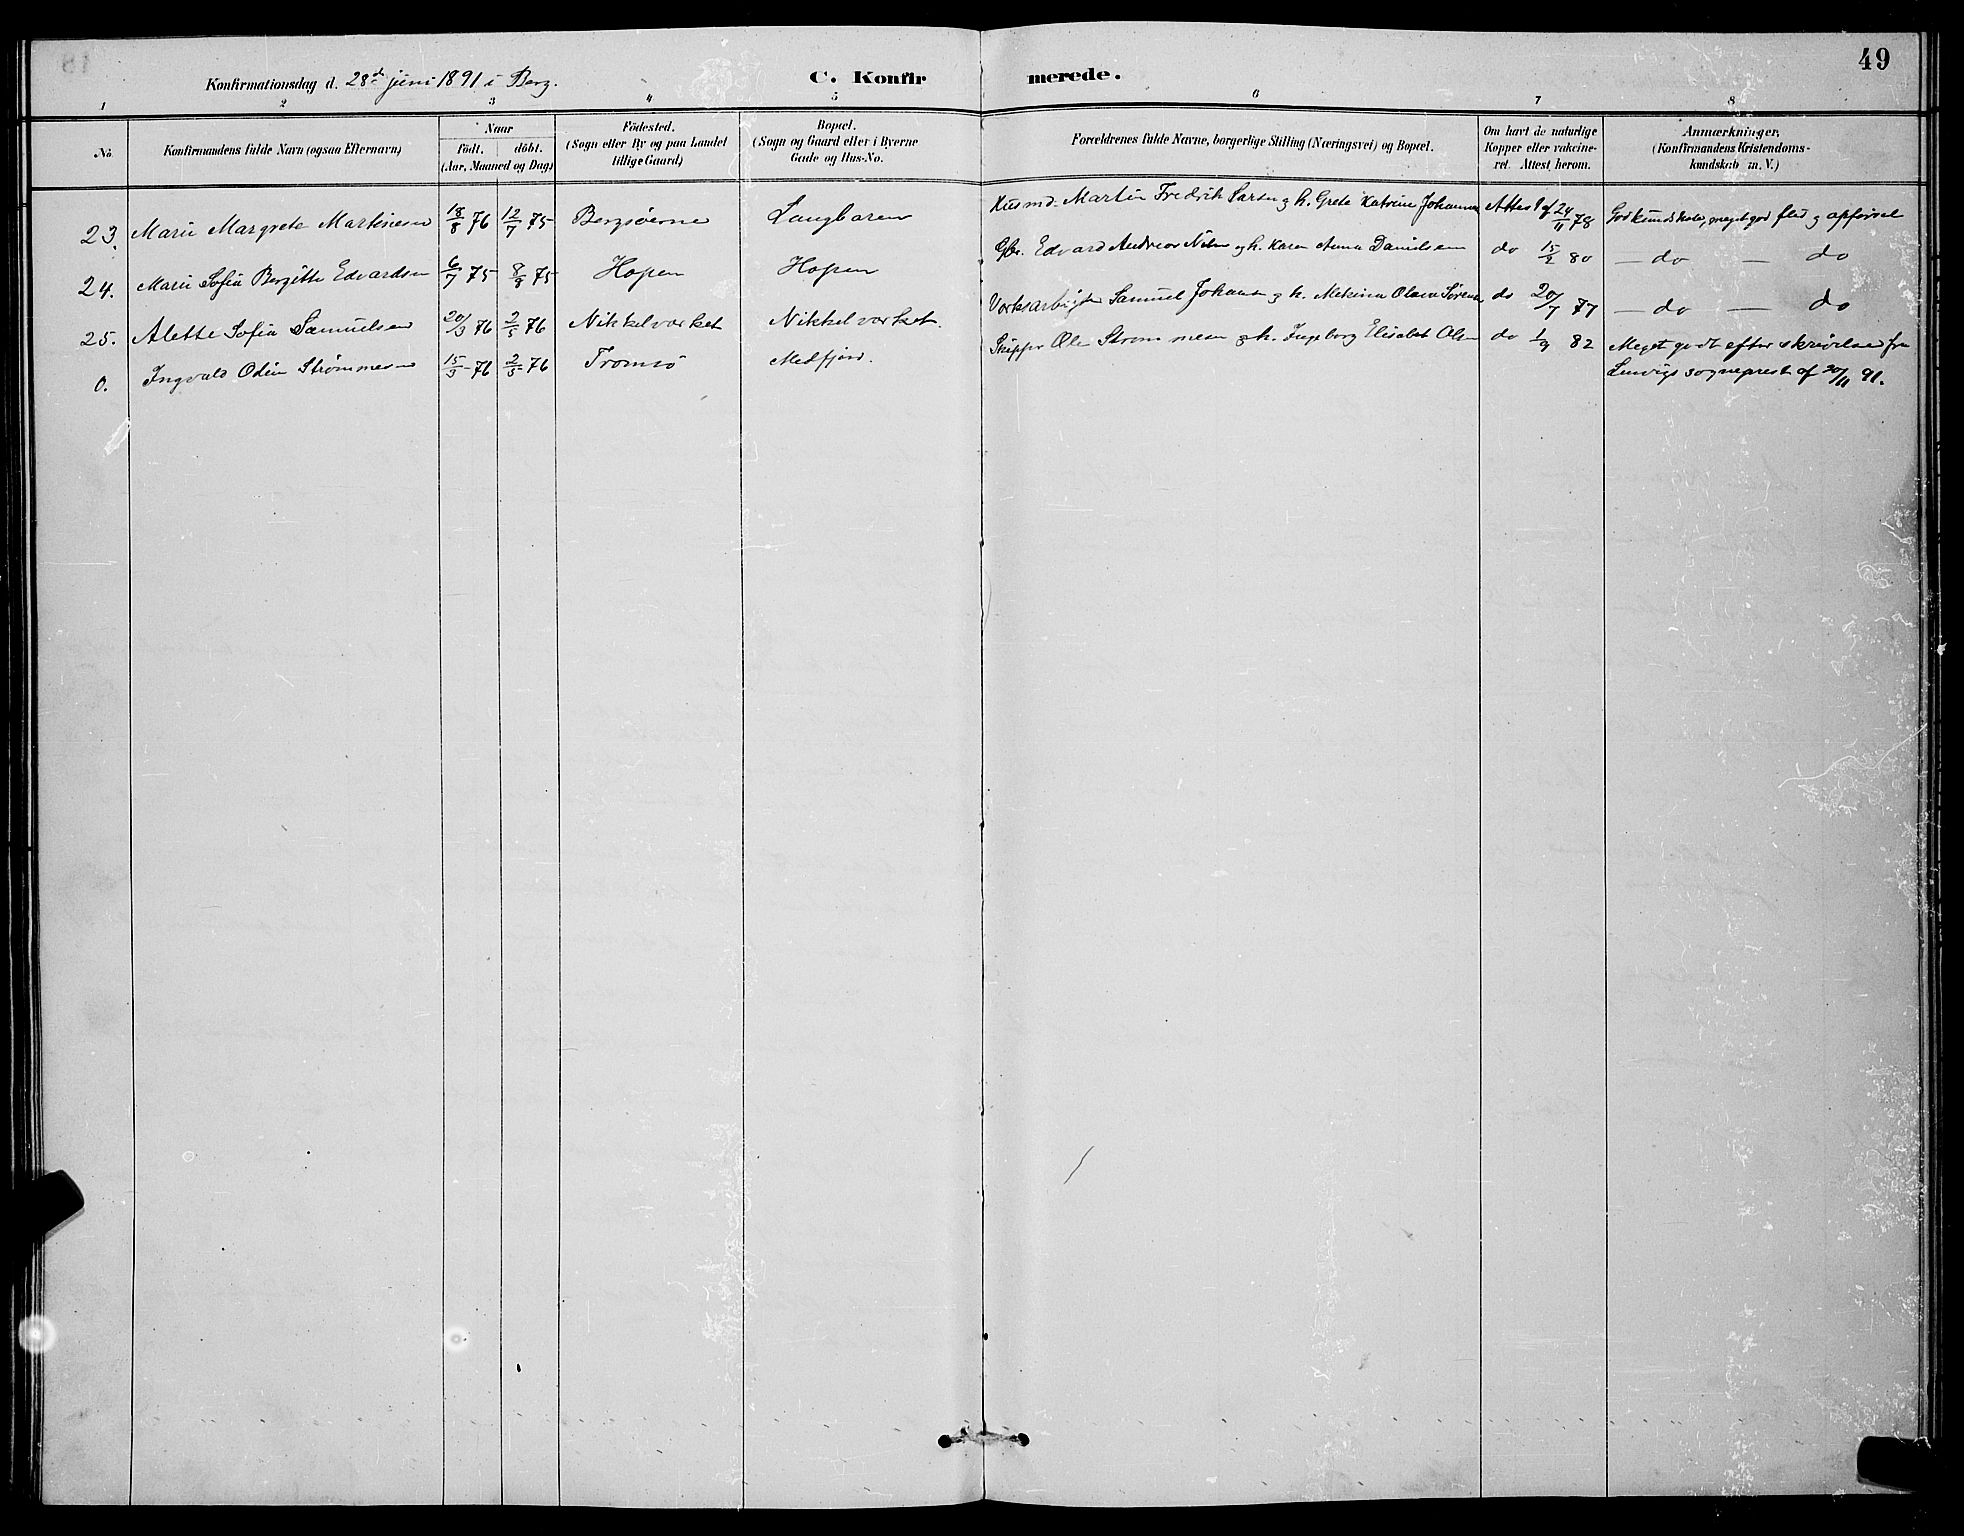 49
Konfirmationsdag d. 28de juni 1891 i Berg.
C. Konfirmerede.
1 2 3 4 5 6 7 8
No.
Konfirmandens fulde Navn (ogsaa Efternavn)
Naar
födt. döbt.
(Aar, Maaned og Dag)
Födested.
(Sogn eller By og paa Landet
tillige Gaard)
Bopæl.
(Sogn og Gaard eller i Byerne
Gade og Hus-No.
Forældrenes fulde Navne, borgerlige Stilling (Næringsvei) og Bopæl.
Om havt de naturlige
Kopper eller vakcine-
ret. Attest herom.
Anmærkninger,
(Konfirmandens Kristendoms-
kundskab m. V.)
23. Marie Margrete Martinesen 18/8 76 12/7 75 Bergsöerne Langbaren Husmd. Martin Fredrik Larsen g h. Grete Katrine Johannes Attest af 24/11 78 God kundskab, meget god flid og opförsel
24. Marie Sofie Bergitte Edvardsen 6/7 75 8/8 75 Hopen Hopen Gbr. Edvard Andreas Nilsen og h. Karen Anna Danielsen do 15/2 80 — do — do
25. Alette Sofie Samuelsen 20/3 76 2/5 76 Nikkelværket Nikkelværket. Værksarbeider Samuel Johans g h. Mekina Olava Sörens do 20/7 77 — do — do
0. Ingvald Odin Strømmesen 15/3 76 2/5 76 Tromsö Medfjord. Skipper Ole Strømmesen g h. Ingeborg Elisabet Olsen do 1/9 82 Meget godt efter skrivelse fra
Lenvigs sogneprest af 20/11 91.